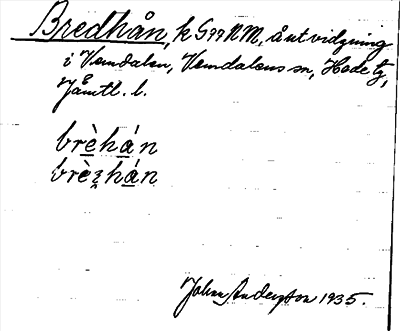 Bredhån, k G99 NM, å ut vidgning
i Vemdalen, Vemdalens sn, Hede tg,
Jämtl. l.
brèhán
brèʒhán
Johan Anderson 1935.